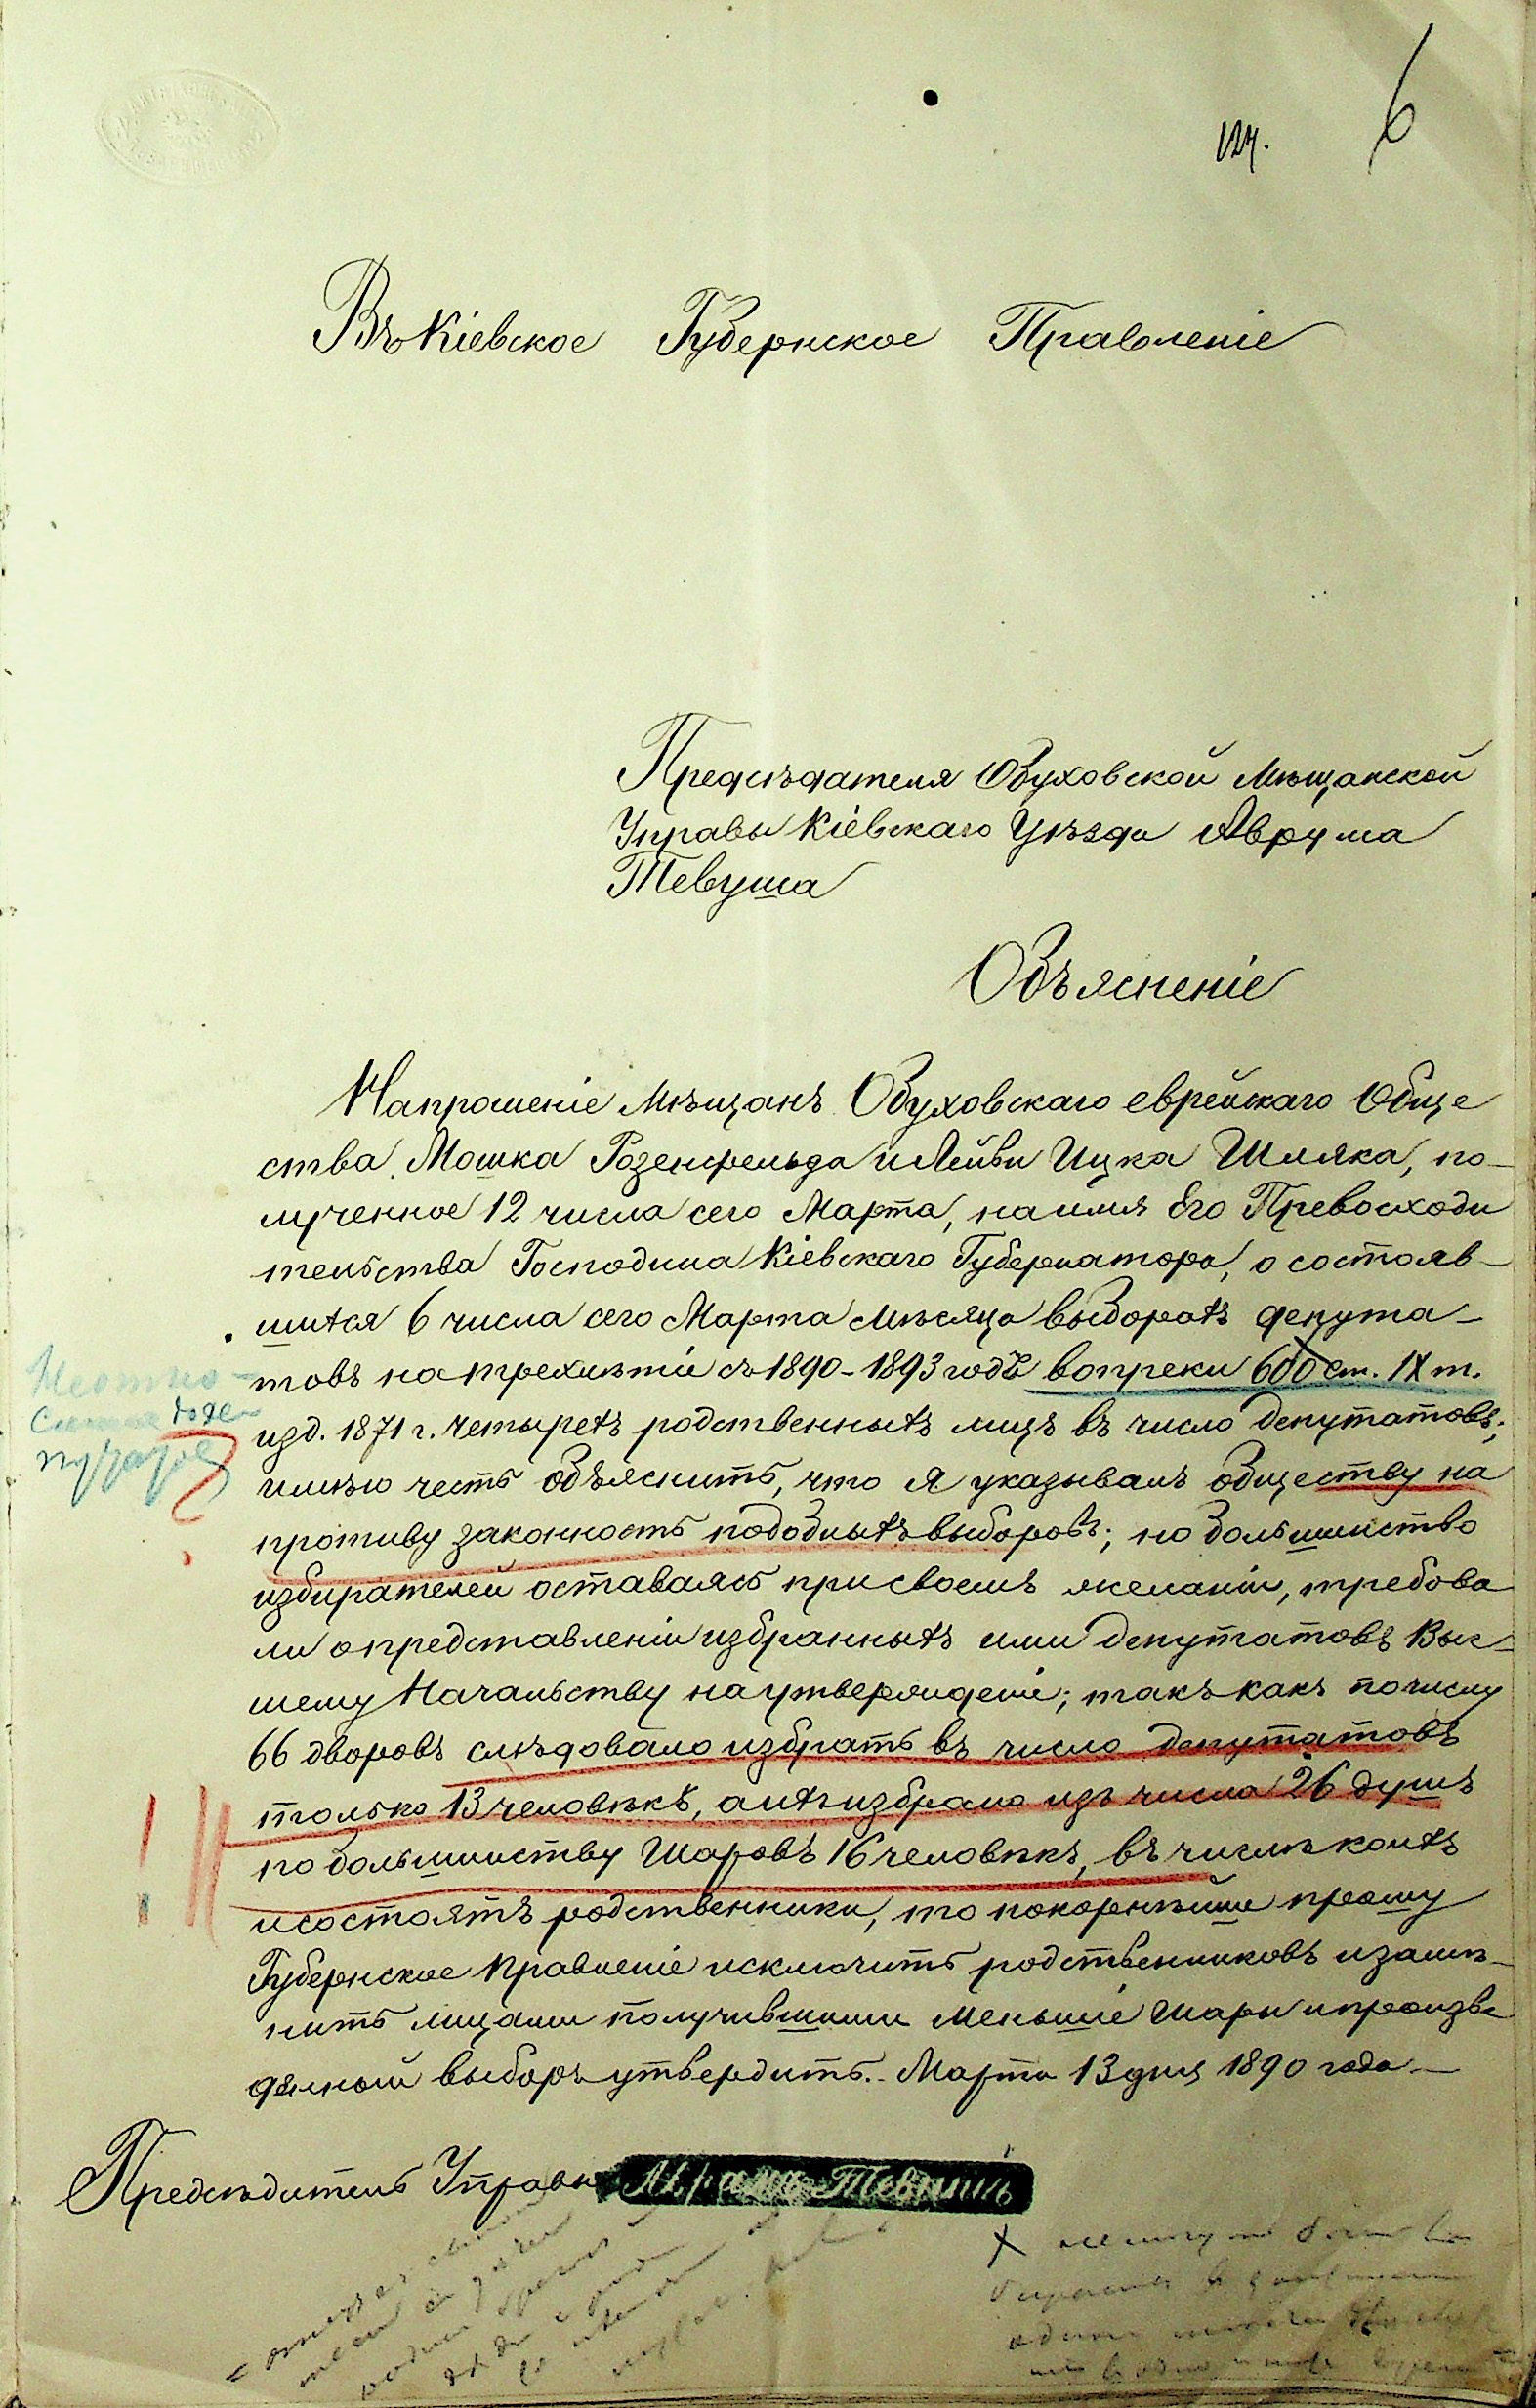 124. 6
Въ Кіевское Губернское Правленіе
Предсѣдателя Обуховской Мѣщанской
Управы Кіевскаго Уѣзда Аврума
Тевуша
Объясненіе
На прошеніе Мѣщанъ Обуховскаго еврейскаго Обще
ства Мошка Розенфельда и Лейви Ицка Шляка, по-
лученное 12 числа сего Марта, на имя Его Превосходи
тельства Господина Кіевскаго Губернатора, о состояв-
шихся 6 числа сего Марта мѣсяца выборахъ депута-
товъ на трехлѣтіе съ 1890-1893 годъ вопреки 600 ст. IX т.
изд. 1871 г. четырехъ родственныхъ лицъ въ число депутатовъ;
имѣю честь объяснить, что я указывалъ обществу на
противу законность подобныхъ выборовъ; но большинство
избирателей оставаясь при своемъ желаніи, требова
ли о представленіи избранныхъ ими депутатовъ Выс-
шему Начальству на утвержденіе; такъ какъ по числу
66 дворовъ слѣдовало избрать въ число депутатовъ
только 13 человѣкъ, а ихъ избрано изъ числа 26 душъ
по большинству Шаровъ 16 человѣкъ, въ числѣ коихъ
и состоятъ родственники, то покорнѣйше прошу
Губернское Правленіе исключить родственниковъ и замѣ-
нить лицами получившими меньшіе Шары и произве
денный выборъ утвердить. Марта 13 дня 1890 года
Предсѣдатель Управы Абрамъ Тевушъ